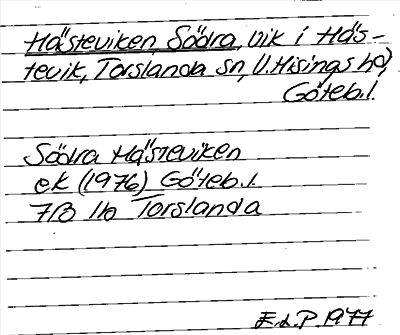 Hästeviken, Södra, vik i Häs-
tevik, Torslanda sn, V. Hisings hd,
Göteb.l.
Södra Hästeviken
ek (1976) Göteb.l.
7B 1b Torslanda
E.d.P 1977